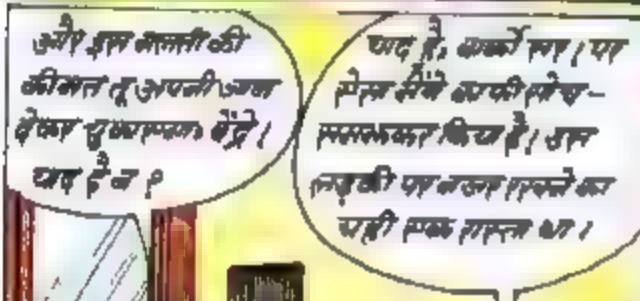 और इस गलती की
कीमत तू अपनी जान
देकर चुकाएगा, बेंद्रे!
याद है न?
याद है, कार्को सर। पर
ऐसा मैंने काफी सोच-
समझकर किया है। उस
लड़की पर नजर रखने का
यही एक रास्ता था।